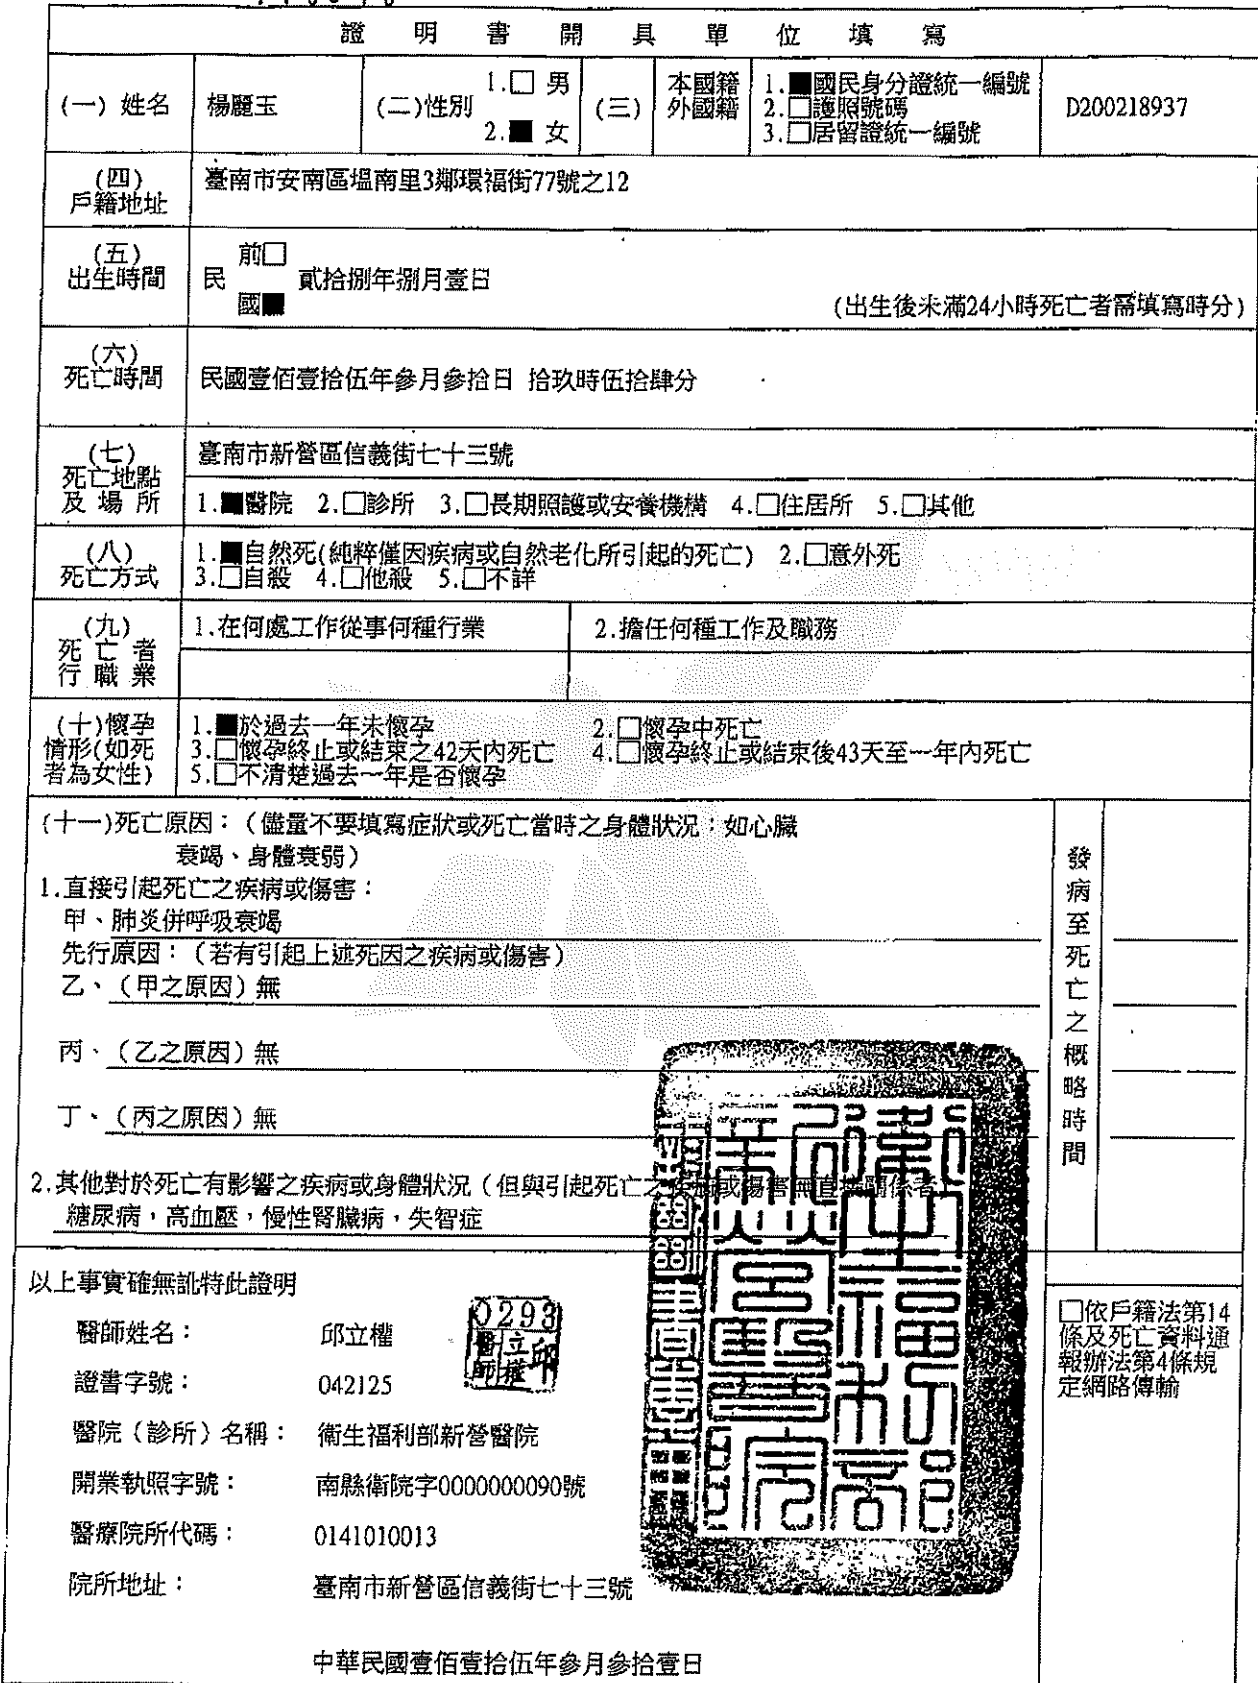 證明書開具單位填寫
(一) 姓名 楊麗玉 (二)性別 1.□ 男 2.■ 女 (三) 本國籍 外國籍 1.■國民身分證統一編號 2.□護照號碼 3.□居留證統一編號 D200218937
(四) 戶籍地址 臺南市安南區塭南里3鄰環福街77號之12
(五) 出生時間 民 前□ 國■ 貳拾捌年捌月壹日
(出生後未滿24小時死亡者需填寫時分)
(六) 死亡時間 民國壹佰壹拾伍年參月參拾日 拾玖時伍拾肆分
(七) 死亡地點及場所 臺南市新營區信義街七十三號
1.■醫院 2.□診所 3.□長期照護或安養機構 4.□住居所 5.□其他
(八) 死亡方式 1.■自然死(純粹僅因疾病或自然老化所引起的死亡) 2.□意外死
3.□自殺 4.□他殺 5.□不詳
(九) 死亡者行職業 1.在何處工作從事何種行業 2.擔任何種工作及職務
(十)懷孕情形(如死者為女性) 1.■於過去一年未懷孕 2.□懷孕中死亡
3.□懷孕終止或結束之42天內死亡 4.□懷孕終止或結束後43天至一年內死亡
5.□不清楚過去一年是否懷孕
(十一)死亡原因：（儘量不要填寫症狀或死亡當時之身體狀況：如心臟
衰竭、身體衰弱）
1.直接引起死亡之疾病或傷害：
甲、肺炎併呼吸衰竭
先行原因：（若有引起上述死因之疾病或傷害）
乙、（甲之原因）無
丙、（乙之原因）無
丁、（丙之原因）無
發病至死亡之概略時間
2.其他對於死亡有影響之疾病或身體狀況（但與引起死亡之疾病或傷害無直接關係者
糖尿病，高血壓，慢性腎臟病，失智症
以上事實確無訛特此證明
醫師姓名： 邱立權
0293
醫師 邱立權
證書字號： 042125
醫院（診所）名稱： 衛生福利部新營醫院
開業執照字號： 南縣衛院字0000000090號
醫療院所代碼： 0141010013
院所地址： 臺南市新營區信義街七十三號
中華民國壹佰壹拾伍年參月參拾壹日
□依戶籍法第14
條及死亡資料通
報辦法第4條規
定網路傳輸